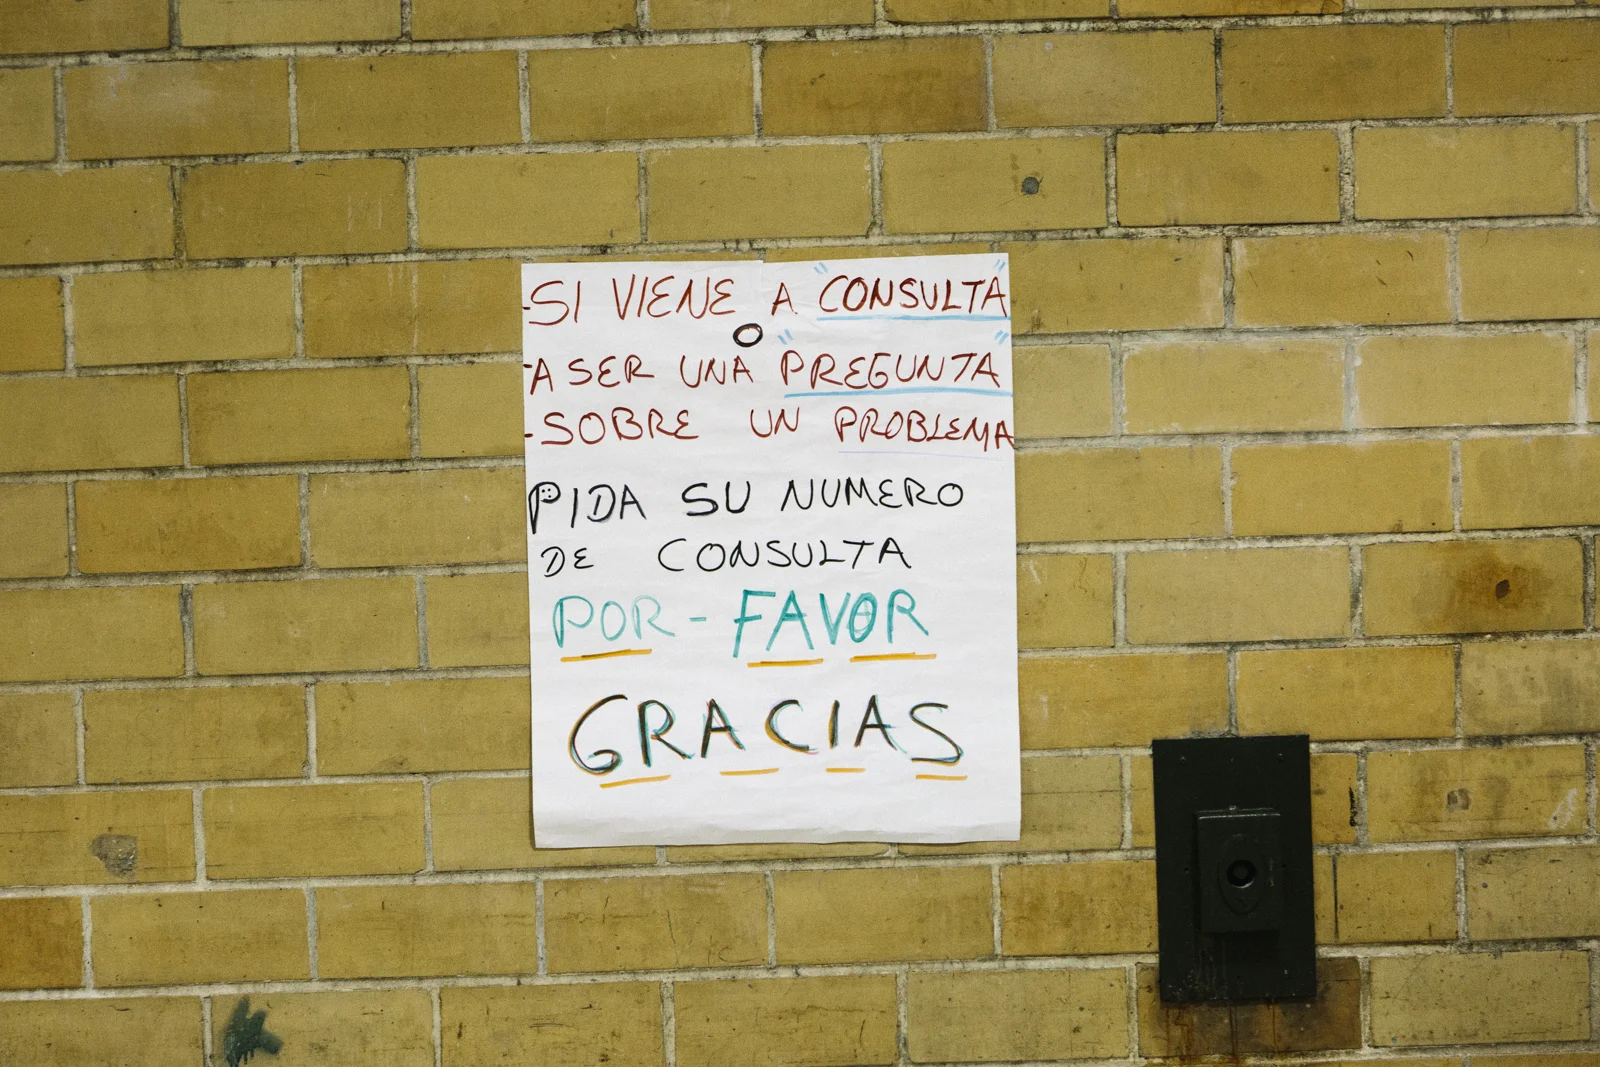 -SI VIENE A "CONSULTA"
O
-A SER UNA "PREGUNTA"
-SOBRE UN PROBLEMA
PIDA SU NUMERO
DE CONSULTA
POR-FAVOR
GRACIAS